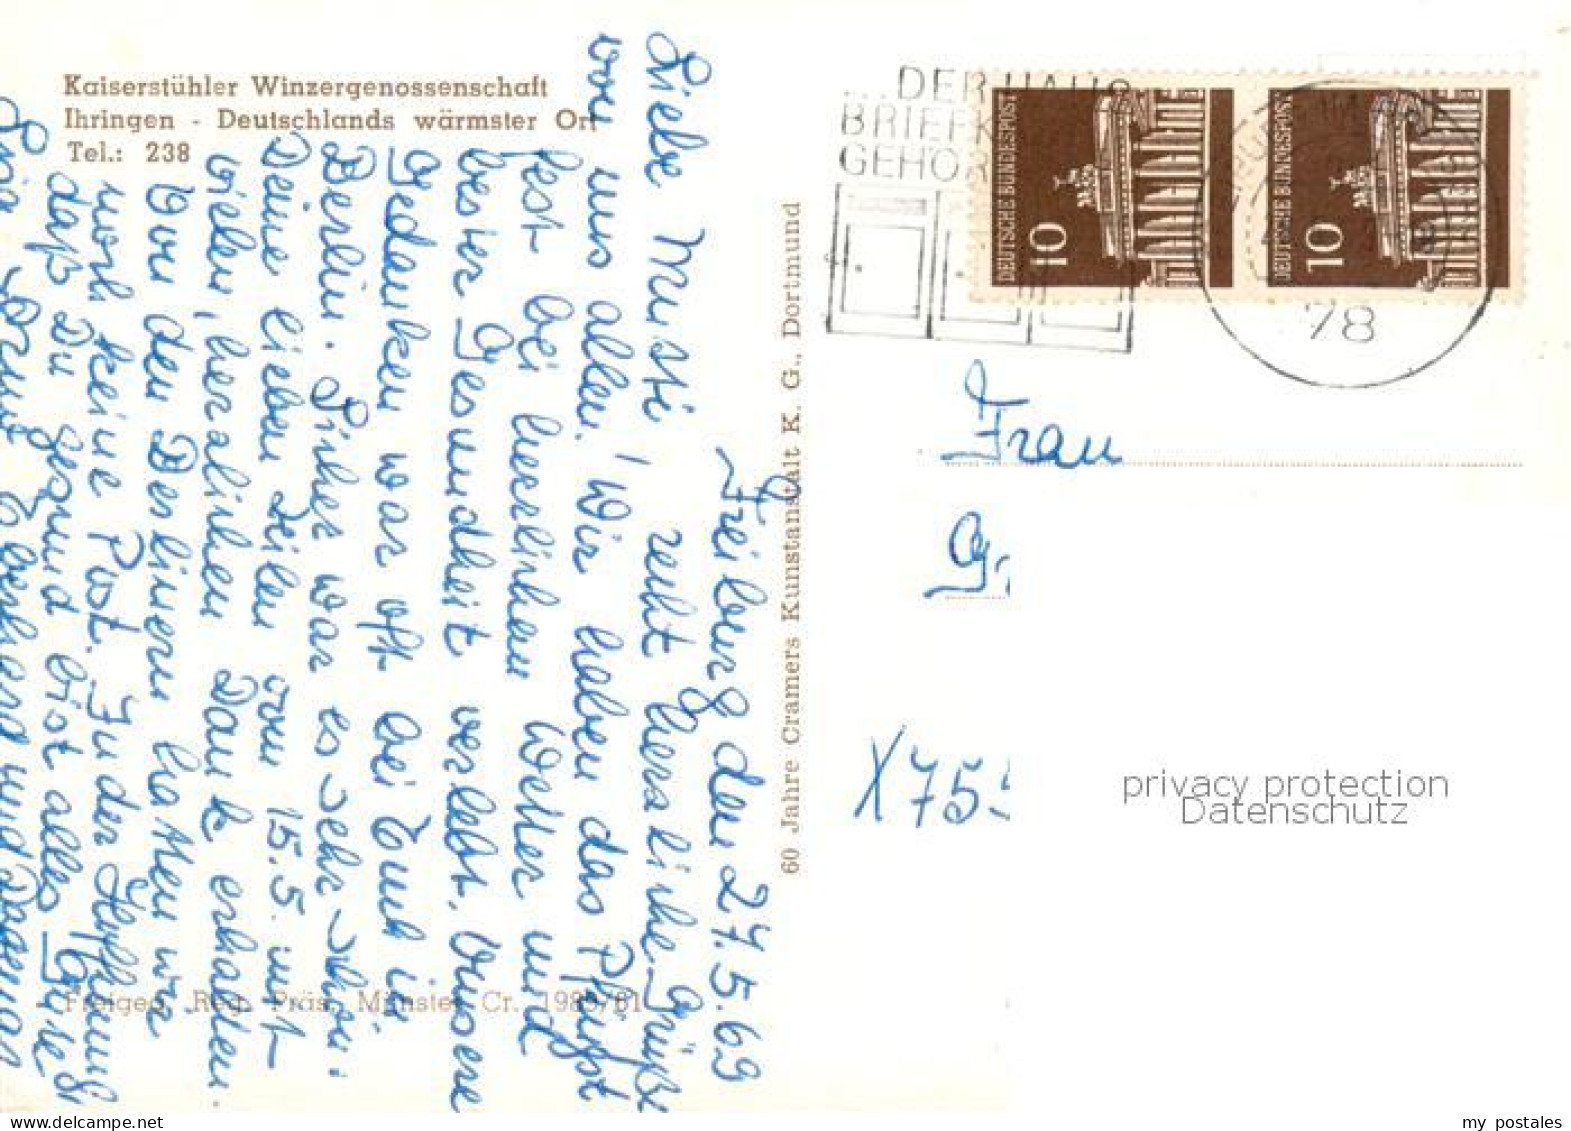 Kaiserstühler Winzergenossenschaft
Ihringen - Deutschlands wärmster Ort
Tel.: 238
Freiburg den 27.5.69
Liebe Musti! recht herzliche Grüße
von uns allen. Wir haben das Pfingst
fest bei herrlichem Wetter und
bester Gesundheit verlebt. Unsere
Gedanken war oft bei Euch in
Berlin. Sicher war es sehr schön!
Deine lieben Zeilen vom 15.5. mit
vielen, herzlichen Dank erhalten.
Von den Berlinern hatten wir
noch keine Post. In der Hoffnung
daß Du gesund bist alles Gute
Eberhard und Dagmar
60 Jahre Cramers Kunstanstalt K. G., Dortmund
Freigeg. Reg. Präs. Münster Cr. 1983/61
... DER HAUS
BRIEFK
GEHÖR
DEUTSCHE BUNDESPOST
10
DEUTSCHE BUNDESPOST
10
78
Frau
G.
X755
privacy protection
Datenschutz
my postales